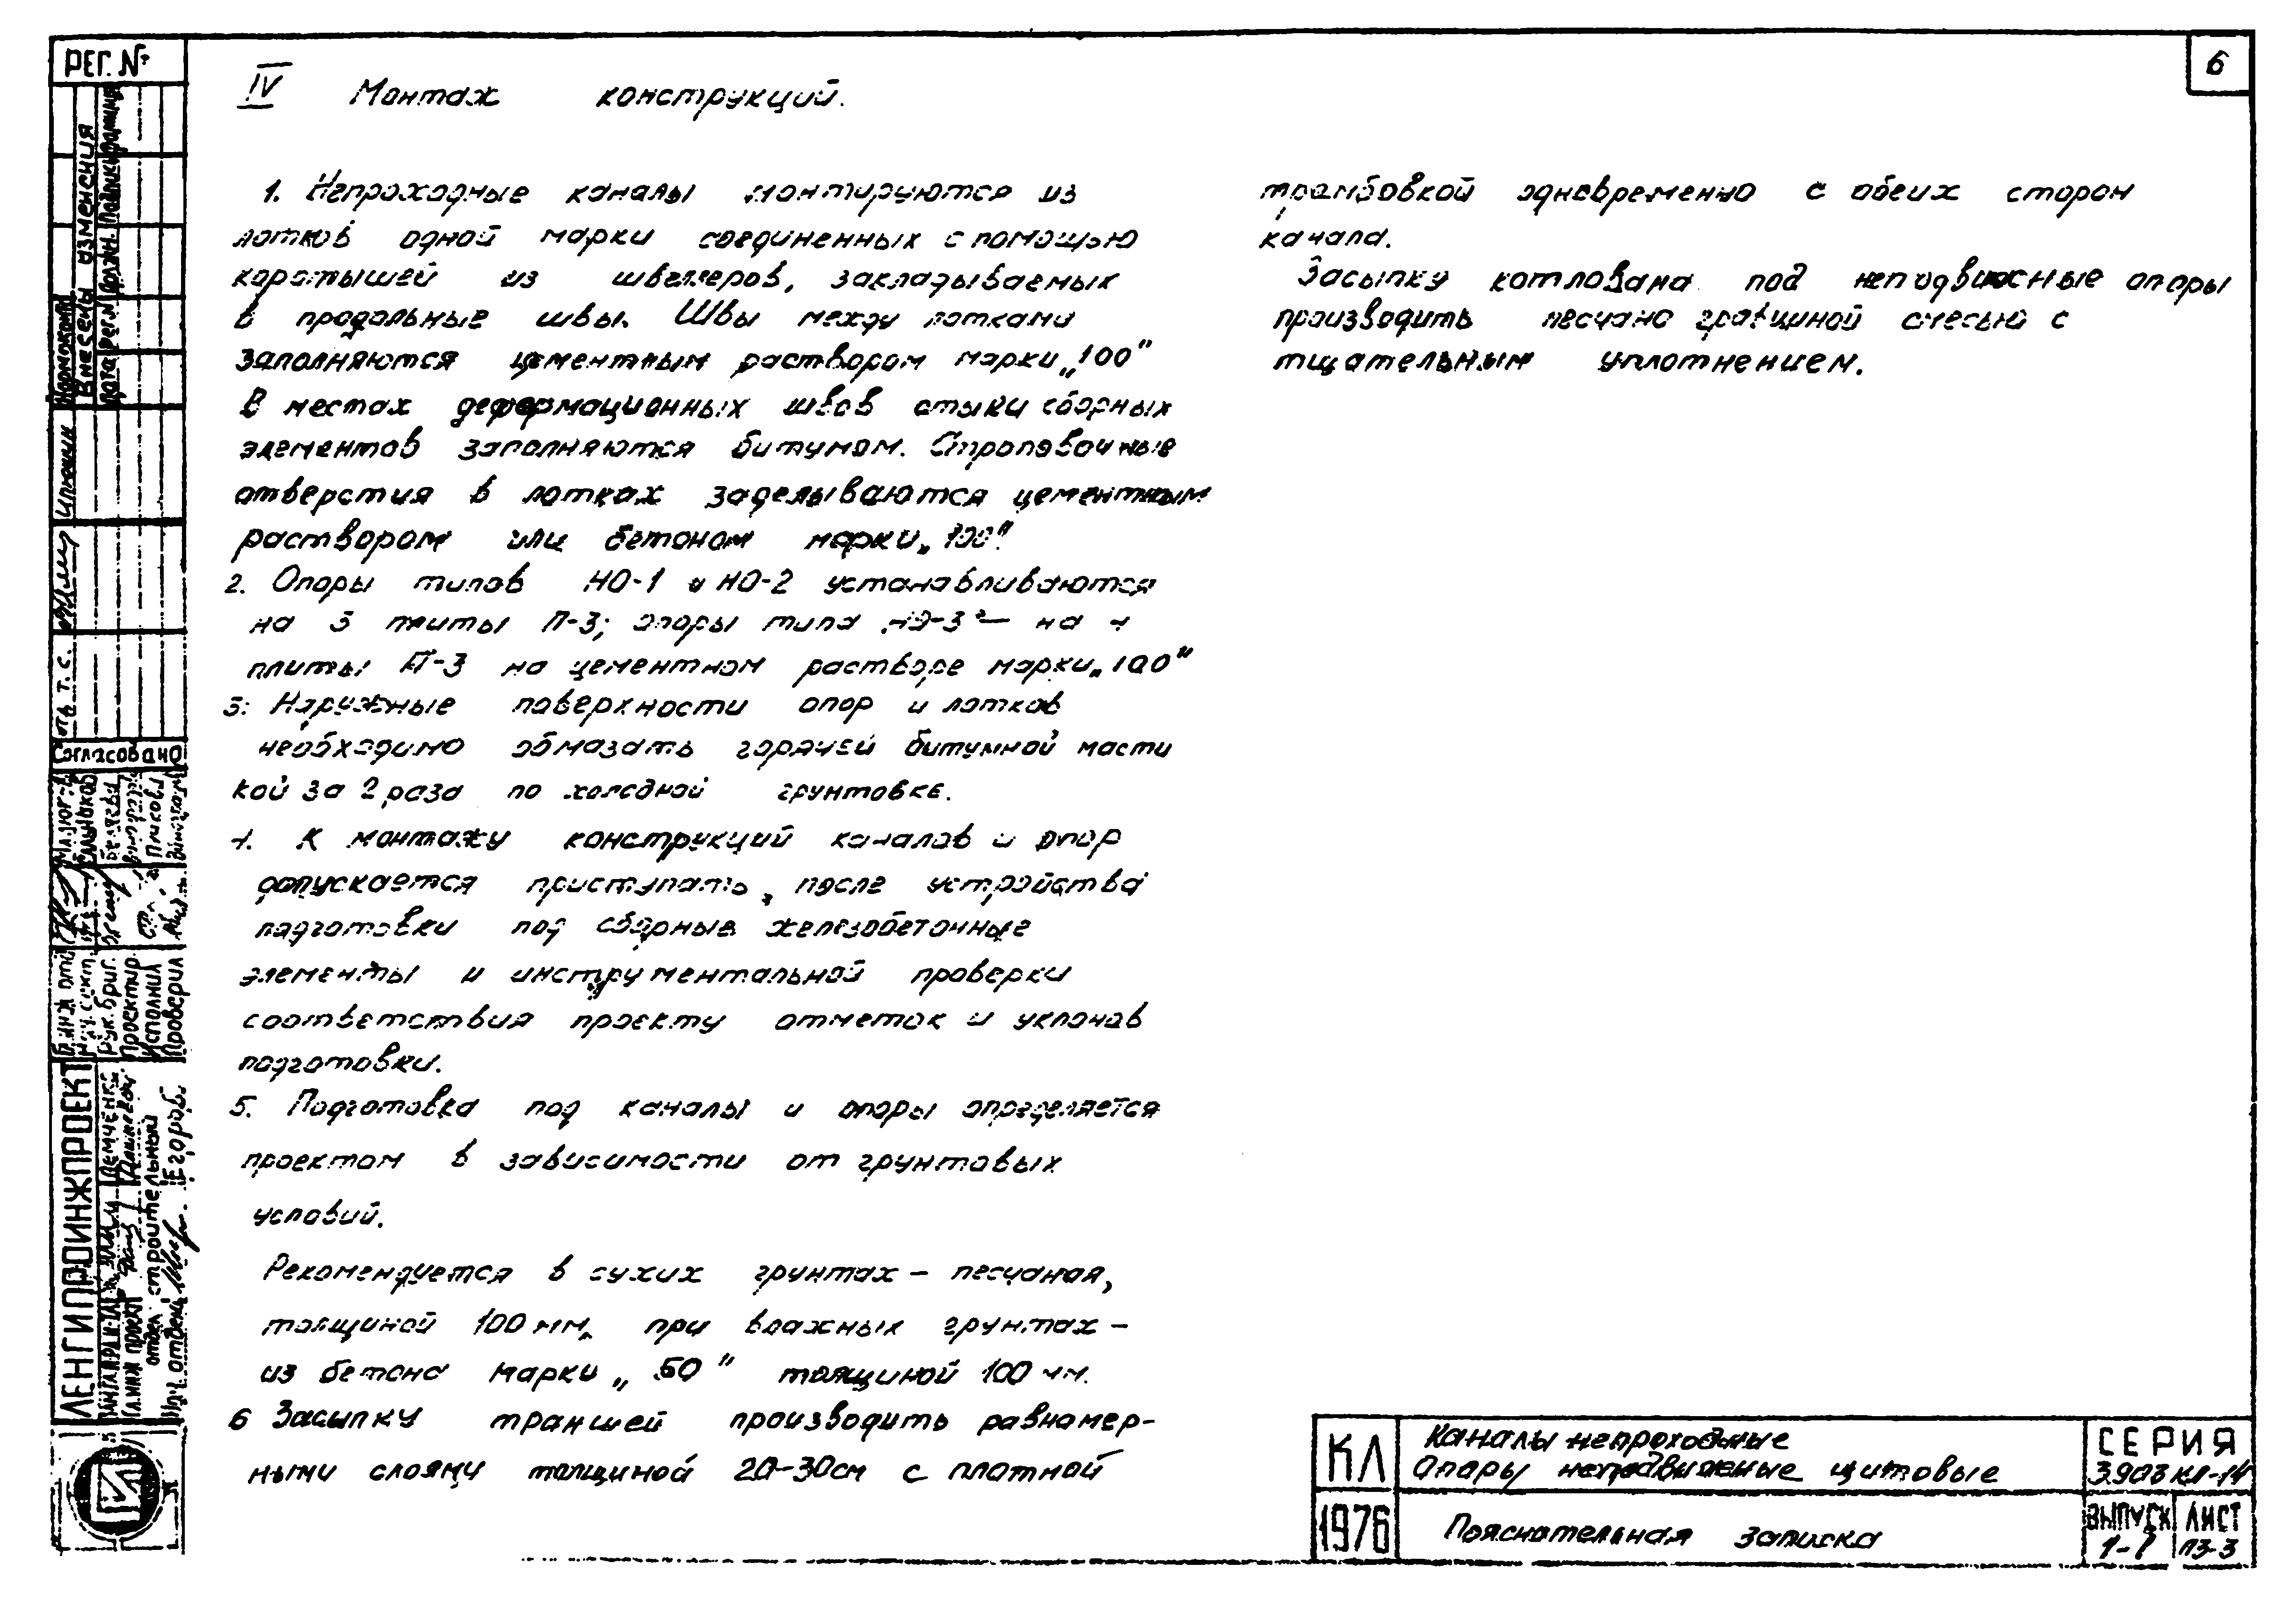 РЕГ. №
6
IV Монтаж конструкций.
1. Непроходные каналы монтируются из
лотков одной марки соединенных с помощью
коротышей из швеллеров, закладываемых
в продольные швы. Швы между лотками
заполняются цементным раствором марки „100"
В местах деформационных швов стыки сборных
элементов заполняются битумом. Строповочные
отверстия в лотках заделываются цементным
раствором или бетоном марки „100".
2. Опоры типов НО-1 и НО-2 устанавливаются
на 3 плиты П-3; опоры типа НО-3 — на 4
плиты П-3 на цементном растворе марки „100"
3. Наружные поверхности опор и лотков
необходимо обмазать горячей битумной масти
кой за 2 раза по холодной грунтовке.
4. К монтажу конструкций каналов и опор
допускается приступать, после устройства
подготовки под сборные железобетонные
элементы и инструментальной проверки
соответствия проекту отметок и уклонов
подготовки.
5. Подготовка под каналы и опоры определяется
проектом в зависимости от грунтовых
условий.
Рекомендуется в сухих грунтах – песчаная,
толщиной 100 мм, при влажных грунтах –
из бетона марки „50" толщиной 100 мм.
6 Засыпку траншей производить равномер-
ными слоями толщиной 20-30см с плотной
трамбовкой одновременно с обеих сторон
канала.
Засыпку котлована под неподвижные опоры
производить песчано гравийной смесью с
тщательным уплотнением.
Внесены изменения
Дата Рег.№ Должн. Подпись Фамилия
Нормоконт
Согласовано
Рук. бриг.
Проектир.
Исполнил
Проверил
ЛЕНГИПРОИНЖПРОЕКТ
отдел строительный
Егоров
КЛ
Каналы непроходные
Опоры неподвижные щитовые
СЕРИЯ
3.903 КЛ-14
1976
Пояснительная записка
ВЫПУСК
1-1
ЛИСТ
ПЗ-3